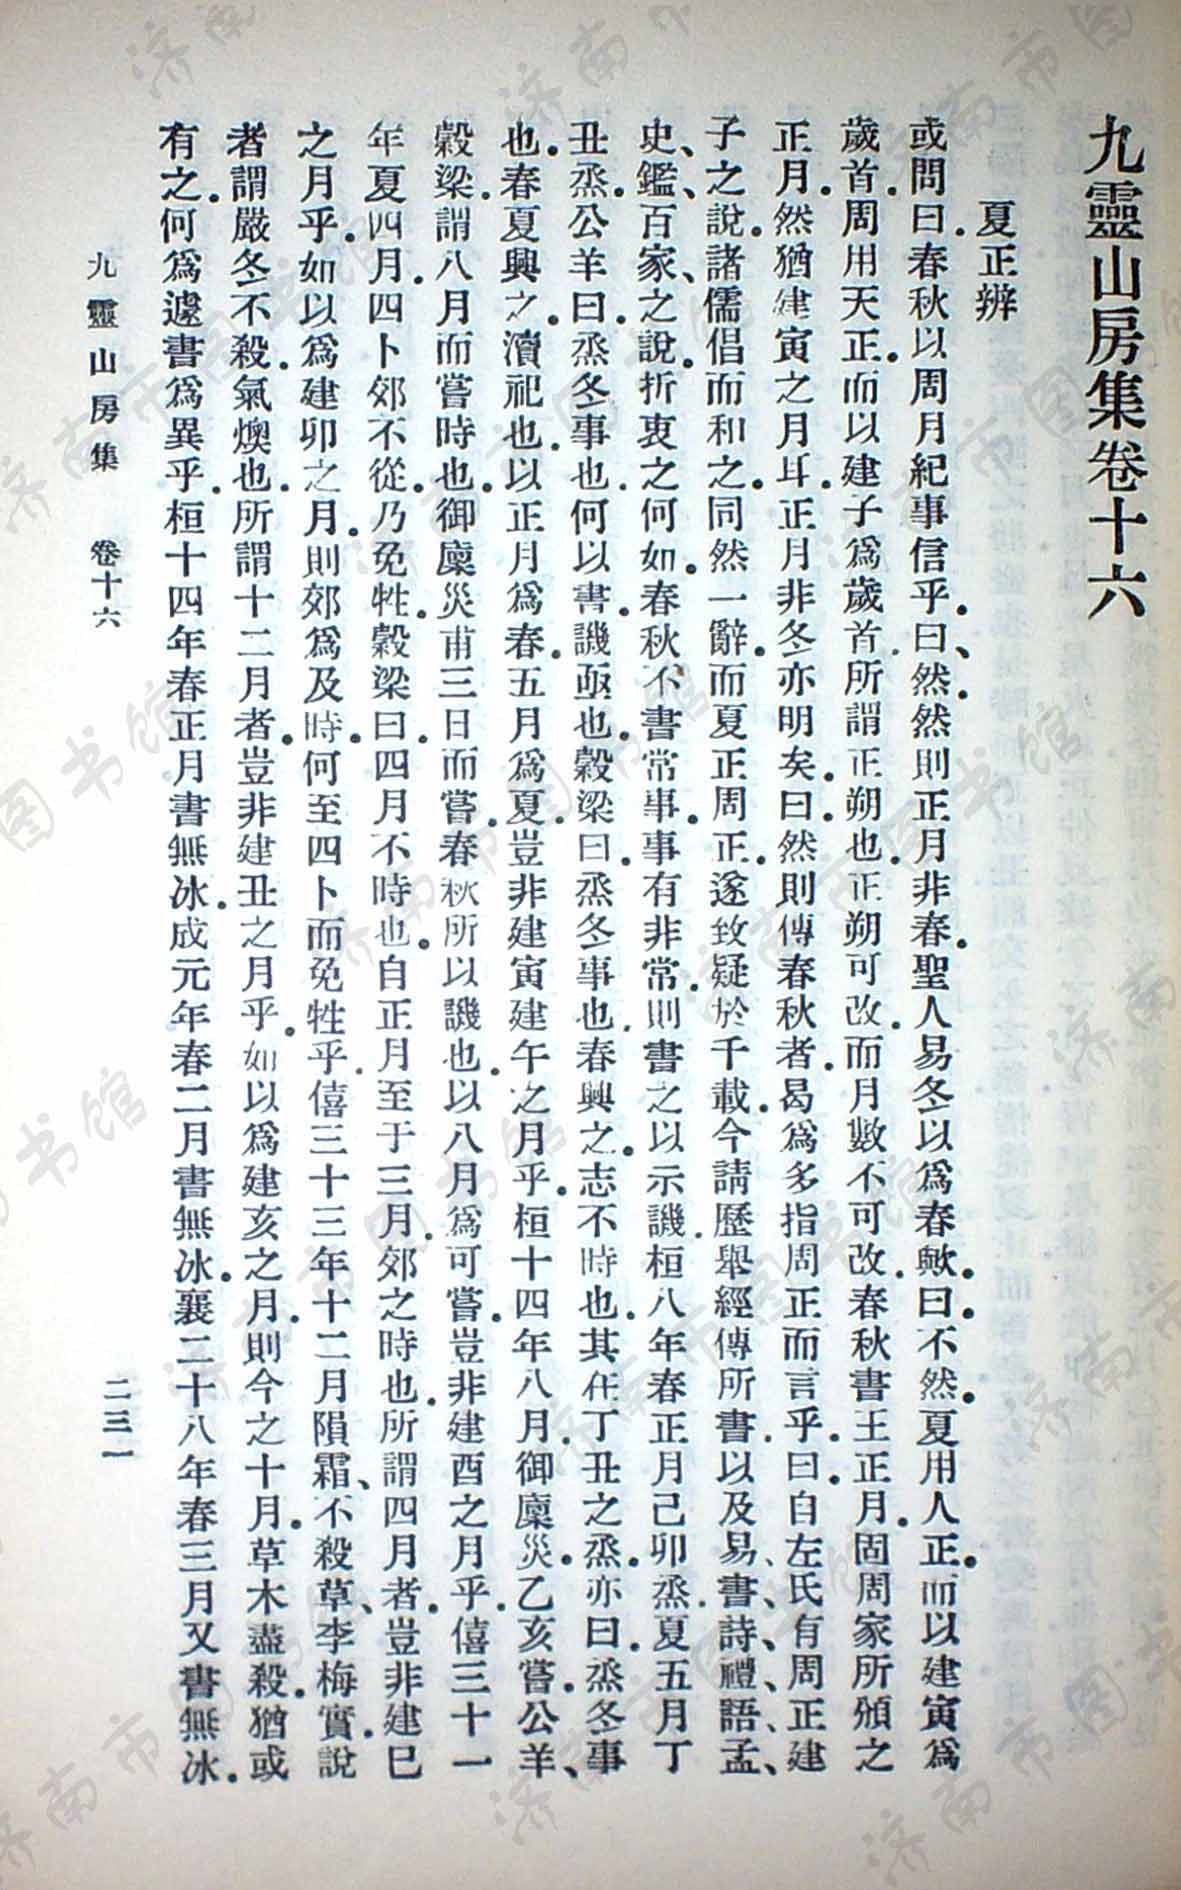 九靈山房集卷十六
夏正辨
或問曰。春秋以周月紀事信乎。曰、然。然則正月非春。聖人易冬以爲春歟。曰。不然。夏用人正。而以建寅爲
歲首。周用天正。而以建子爲歲首。所謂正朔也。正朔可改。而月數不可改。春秋書王正月。固周家所頒之
正月。然猶建寅之月耳。正月非冬。亦明矣。曰。然則傳春秋者。曷爲多指周正而言乎。曰。自左氏有周正建
子之說。諸儒倡而和之。同然一辭。而夏正周正。遂致疑於千載。今請歷舉經傳所書。以及易、書、詩、禮、語、孟、
史、鑑、百家、之說。折衷之何如。春秋不書常事。事有非常。則書之以示譏。桓八年春正月己卯烝。夏五月丁
丑烝。公羊曰。烝冬事也。何以書。譏亟也。穀梁曰。烝冬事也。春興之。志不時也。其在丁丑之烝。亦曰。烝冬事
也。春夏興之。瀆祀也。以正月爲春。五月爲夏。豈非建寅建午之月乎。桓十四年八月。御廩災。乙亥嘗。公羊、
穀梁。謂八月而嘗時也。御廩災甫三日而嘗。春秋所以譏也。以八月爲可嘗。豈非建酉之月乎。僖三十一
年夏四月。四卜郊不從。乃免牲。穀梁曰。四月不時也。自正月至于三月。郊之時也。所謂四月者。豈非建巳
之月乎。如以爲建卯之月。則郊爲及時。何至四卜而免牲乎。僖三十三年十二月隕霜、不殺草、李梅實。說
者謂嚴冬不殺。氣燠也。所謂十二月者。豈非建丑之月乎。如以爲建亥之月。則今之十月。草木盡殺。猶或
有之。何爲遽書爲異乎。桓十四年春正月書無冰。成元年春二月書無冰。襄二十八年春三月又書無冰。
九靈山房集　卷十六　二三一